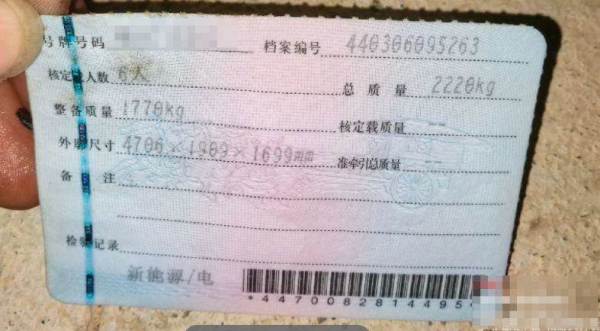 号牌号码 档案编号 440306095263
核定载人数 6人 总质量 2220kg
整备质量 1770kg 核定载质量 --
外廓尺寸 4706×1909×1699mm 准牵引总质量 --
备注
检验记录
新能源/电
*4470082814495